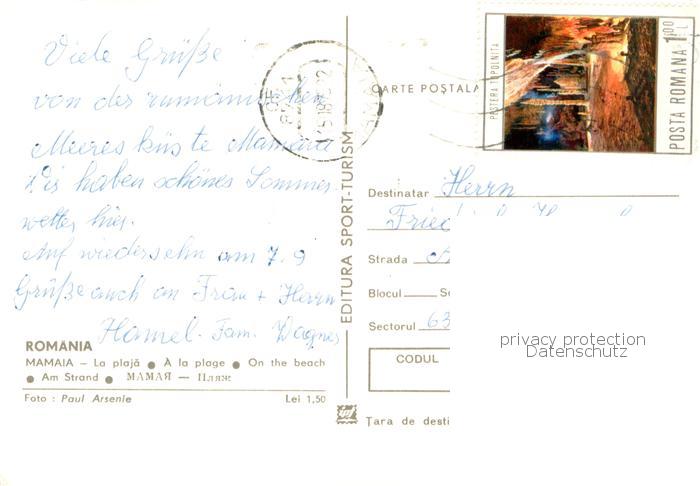 Viele Grüße
von der rumänischen
Meeresküste Mamaia
Wir haben schönes Sommer-
wetter hier.
Auf wiedersehn am 7.9
Grüße auch an Frau + Herrn
Hamel. Fam. Wagner
ROMÂNIA
MAMAIA – La plajă ● À la plage ● On the beach
● Am Strand ● МАМАЯ — Пляж
Foto : Paul Arsenie Lei 1,50
EDITURA SPORT-TURISM
CARTE POȘTALA
PEȘTERA TOPOLNIȚA
POSTA ROMANA 1,00 L
Destinatar Herrn
Fried
Strada
Blocul
Sectorul 63
CODUL
Țara de desti
privacy protection
Datenschutz